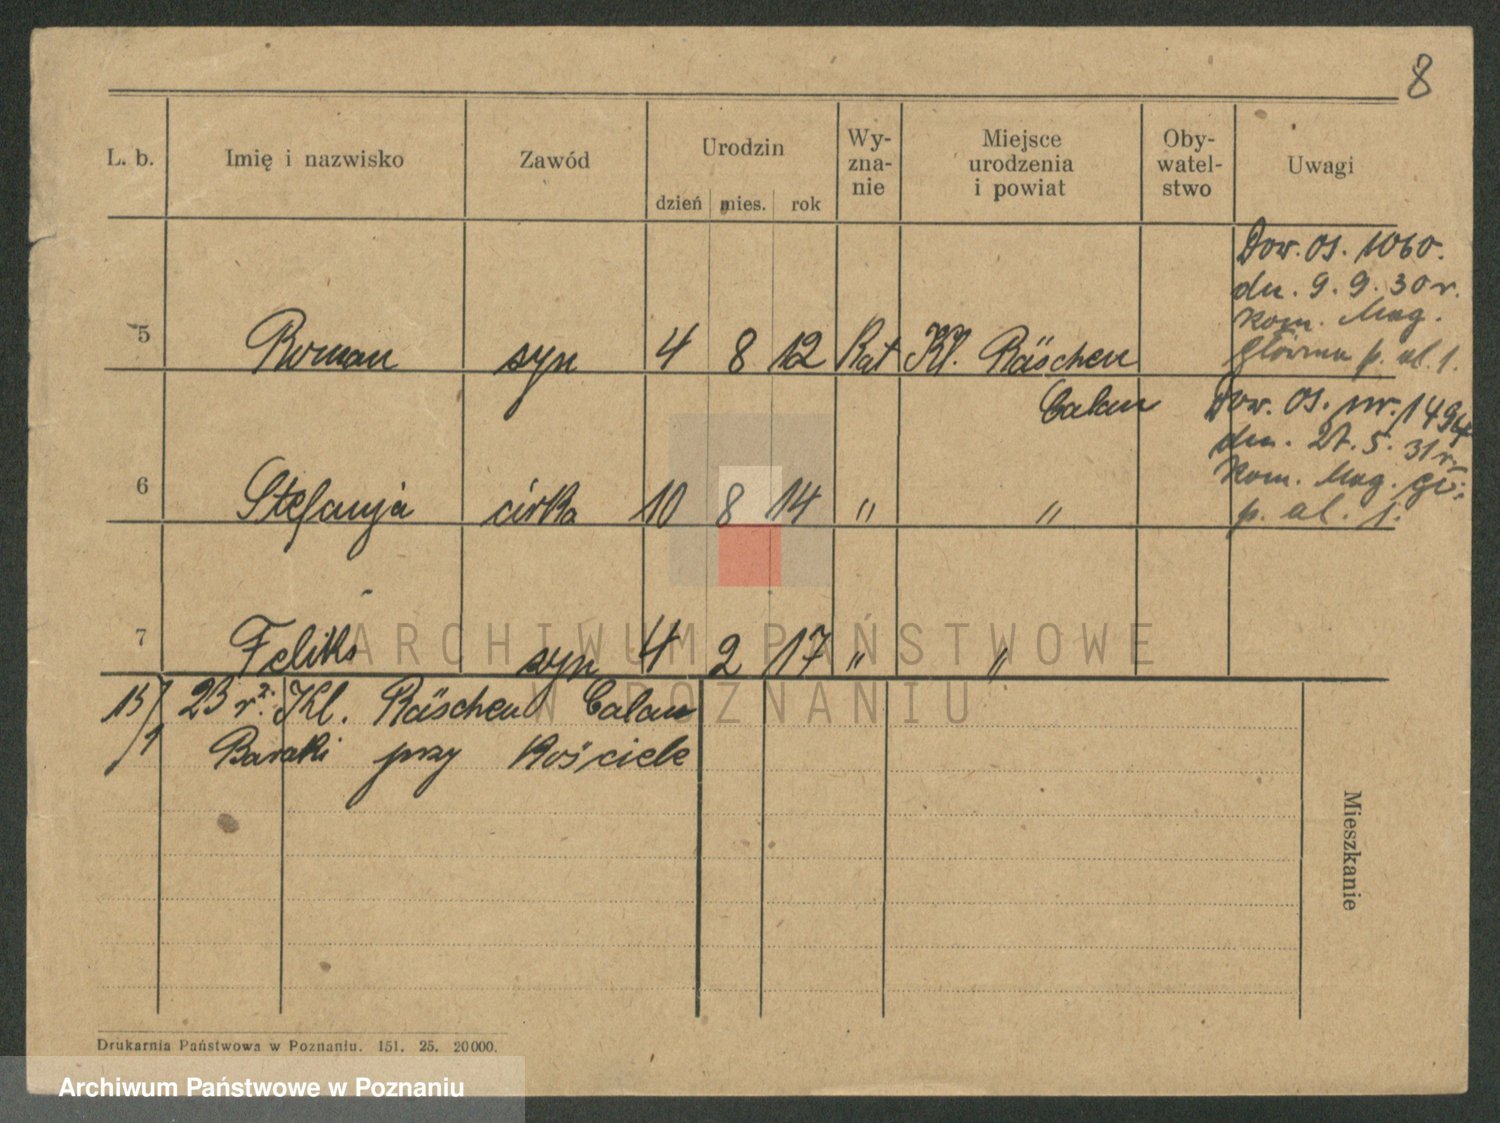 8
L. b. Imię i nazwisko Zawód Urodzin Wy- Miejsce Oby- Uwagi
zna- urodzenia watel-
nie i powiat stwo
dzień mies. rok
Dow. os. 1060.
dn. 9. 9. 30 r.
Kom. Mag.
główna p. al. 1.
5 Roman syn 4 8 12 Kat Kl. Räschen
Calau
Dow. os. nr. 1494
dn. 27. 5. 31 r.
Kom. Mag. gł.
p. al. 1.
6 Stefanja córka 10 8 14 " "
7 Feliks syn 4 2 17 " "
ARCHIWUM PAŃSTWOWE
W POZNANIU
15/1 23 r. z Kl. Räschen Calau
Baraki przy Kościele
Mieszkanie
Drukarnia Państwowa w Poznaniu. 151. 25. 20000.
Archiwum Państwowe w Poznaniu